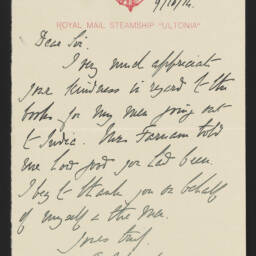 9/10/14.
ROYAL MAIL STEAMSHIP "ULTONIA"
Dear Sir.
I very much appreciate
your kindness in regard to the
books for my men going out
to India. Mrs Farnam told
me how good you had been.
I beg to thank you on behalf
of myself & the men.
Yours truly.